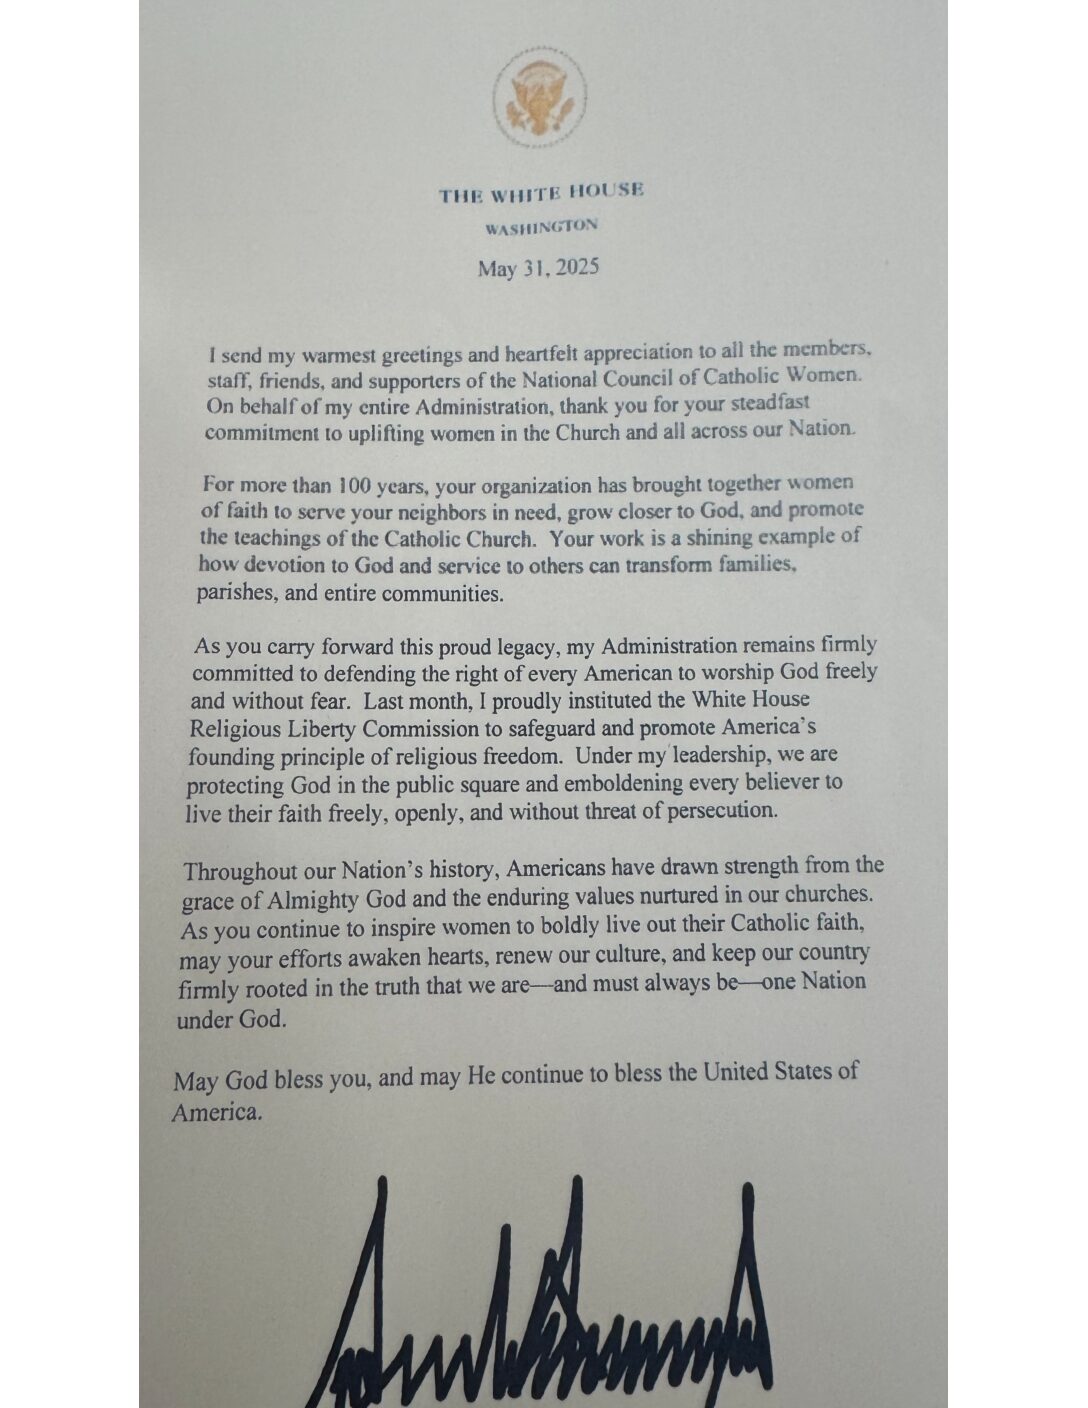 THE WHITE HOUSE
WASHINGTON
May 31, 2025
I send my warmest greetings and heartfelt appreciation to all the members,
staff, friends, and supporters of the National Council of Catholic Women.
On behalf of my entire Administration, thank you for your steadfast
commitment to uplifting women in the Church and all across our Nation.
For more than 100 years, your organization has brought together women
of faith to serve your neighbors in need, grow closer to God, and promote
the teachings of the Catholic Church. Your work is a shining example of
how devotion to God and service to others can transform families,
parishes, and entire communities.
As you carry forward this proud legacy, my Administration remains firmly
committed to defending the right of every American to worship God freely
and without fear. Last month, I proudly instituted the White House
Religious Liberty Commission to safeguard and promote America's
founding principle of religious freedom. Under my leadership, we are
protecting God in the public square and emboldening every believer to
live their faith freely, openly, and without threat of persecution.
Throughout our Nation's history, Americans have drawn strength from the
grace of Almighty God and the enduring values nurtured in our churches.
As you continue to inspire women to boldly live out their Catholic faith,
may your efforts awaken hearts, renew our culture, and keep our country
firmly rooted in the truth that we are—and must always be—one Nation
under God.
May God bless you, and may He continue to bless the United States of
America.